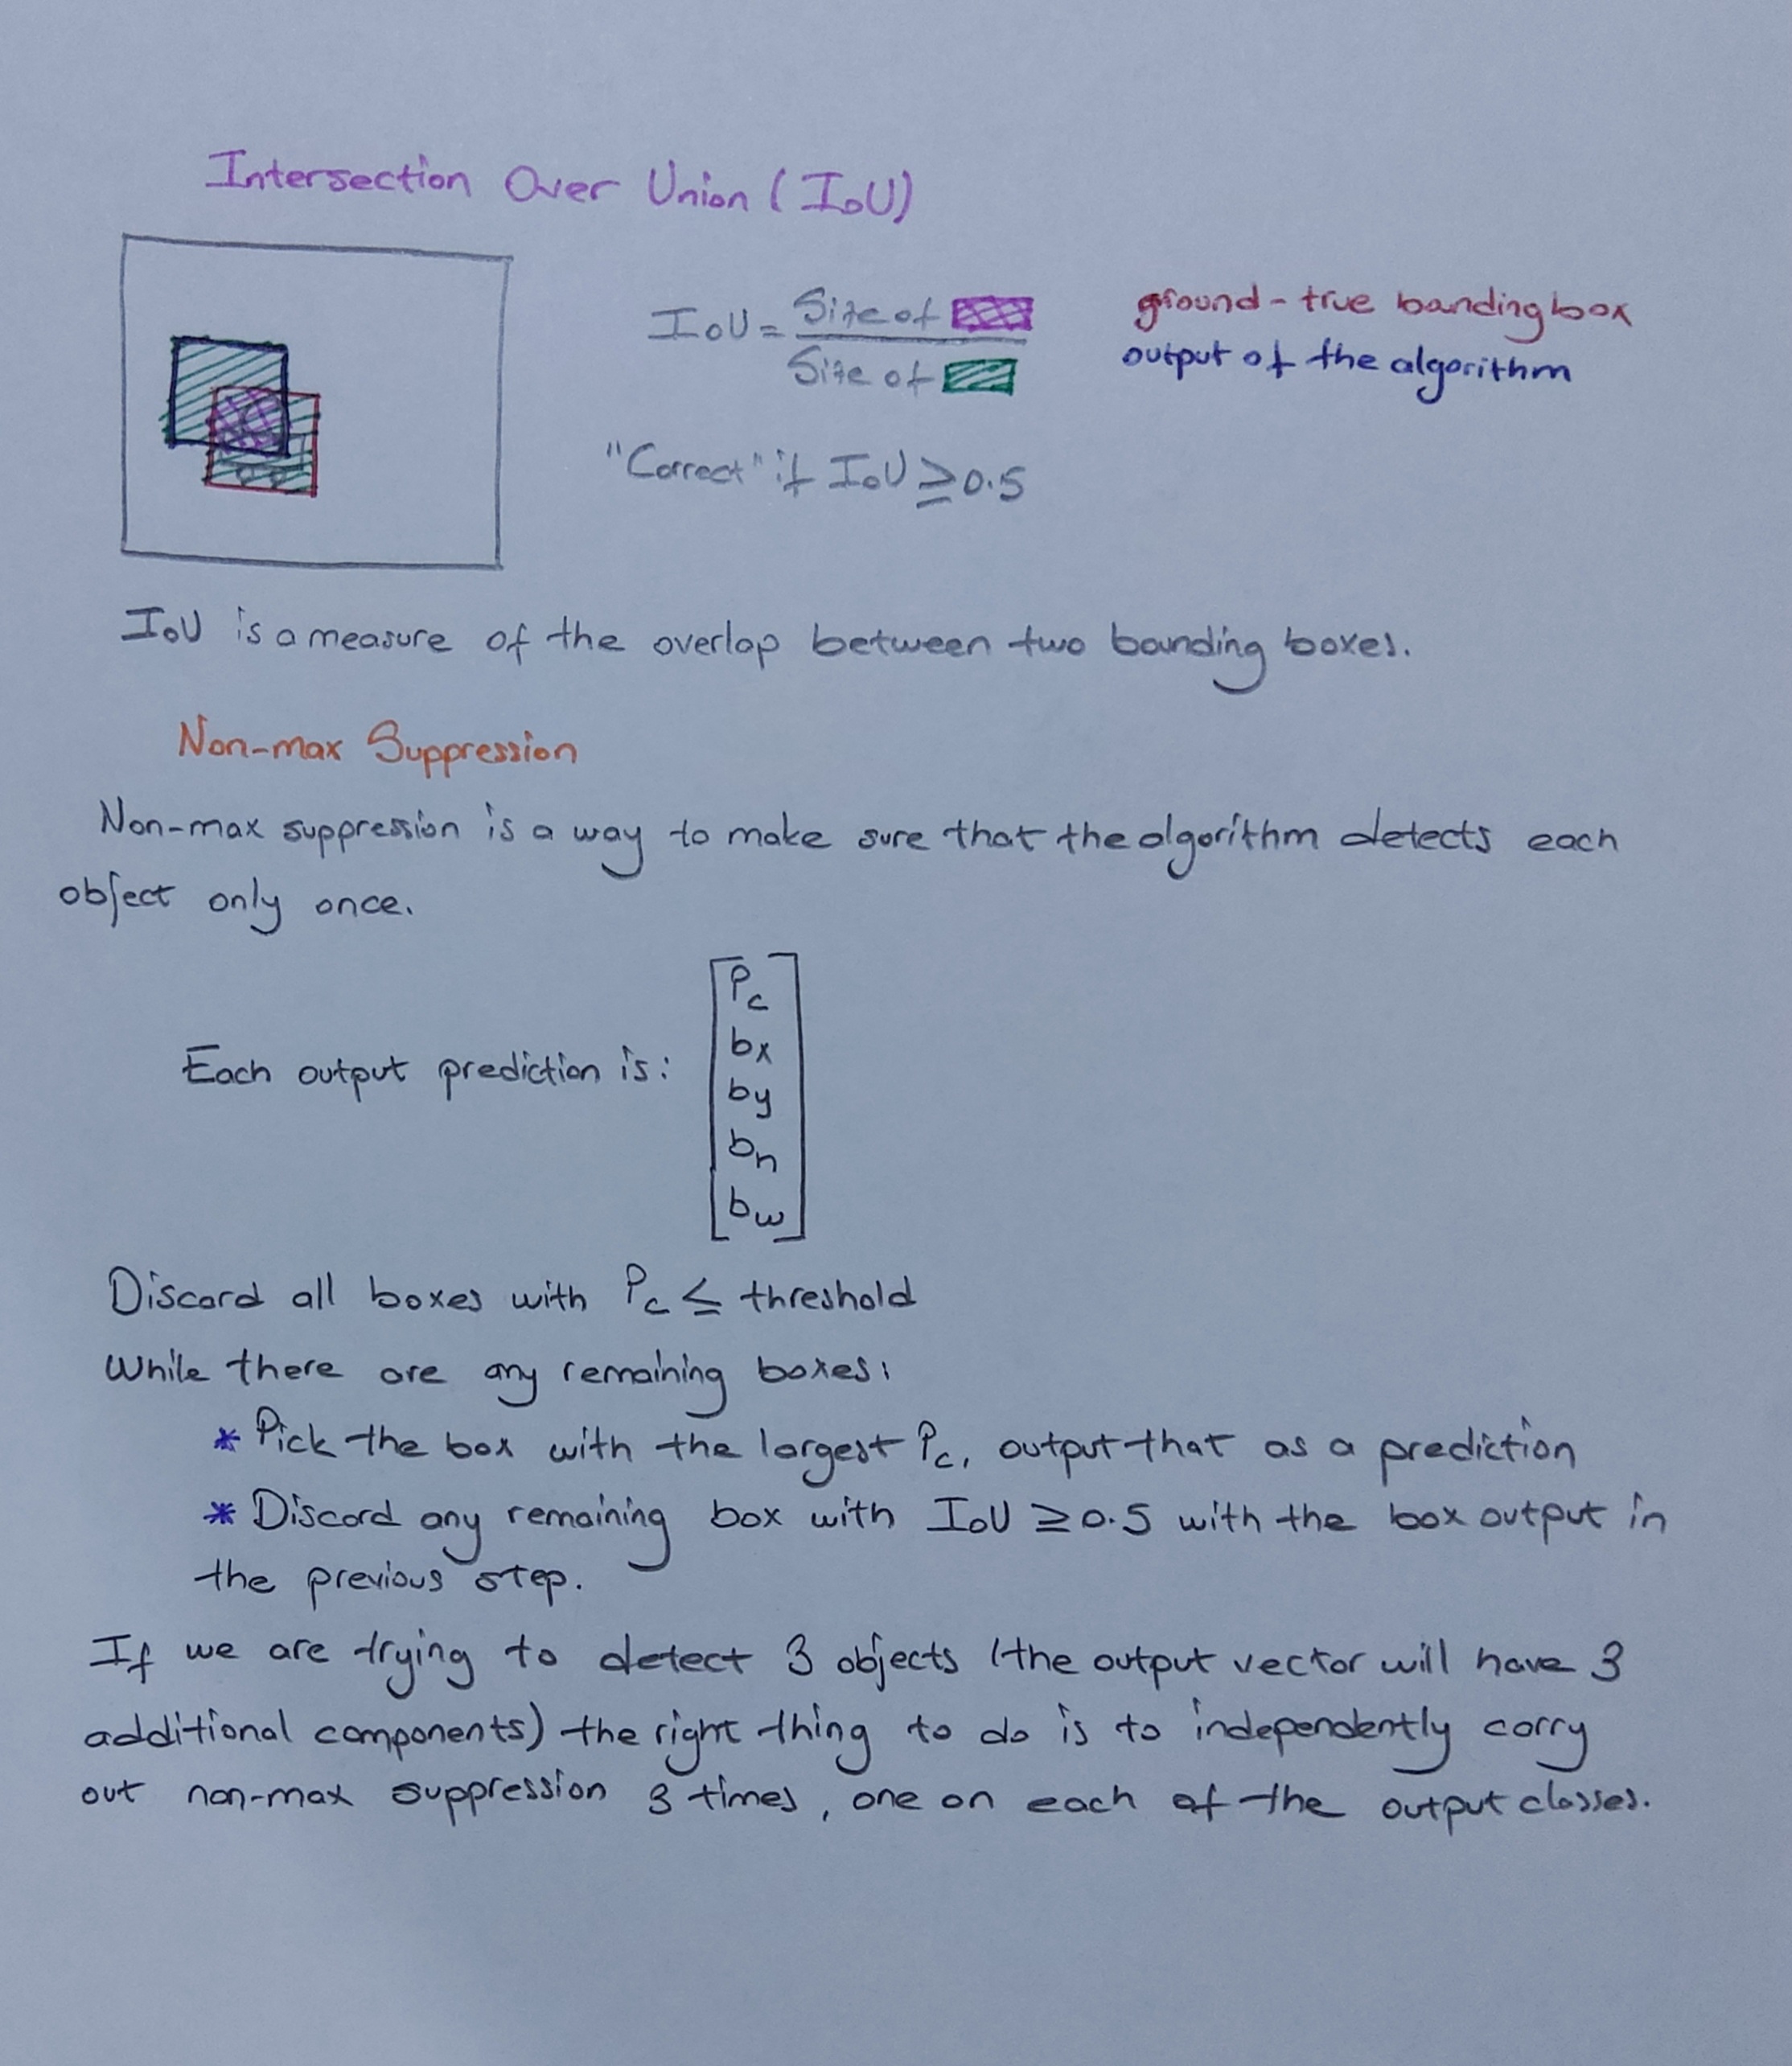 Intersection Over Union (IoU)
IoU = Size of
Size of
ground-true banding box
output of the algorithm
"Correct" if IoU ≥ 0.5
IoU is a measure of the overlap between two banding boxes.
Non-max Suppression
Non-max suppression is a way to make sure that the algorithm detects each
object only once.
Pc
bx
by
Each output prediction is:
bh
bw
Discard all boxes with Pc ≤ threshold
While there are any remaining boxes:
* Pick the box with the largest Pc, output that as a prediction
* Discard any remaining box with IoU ≥ 0.5 with the box output in
the previous step.
If we are trying to detect 3 objects (the output vector will have 3
additional components) the right thing to do is to independently carry
out non-max suppression 3 times, one on each of the output classes.